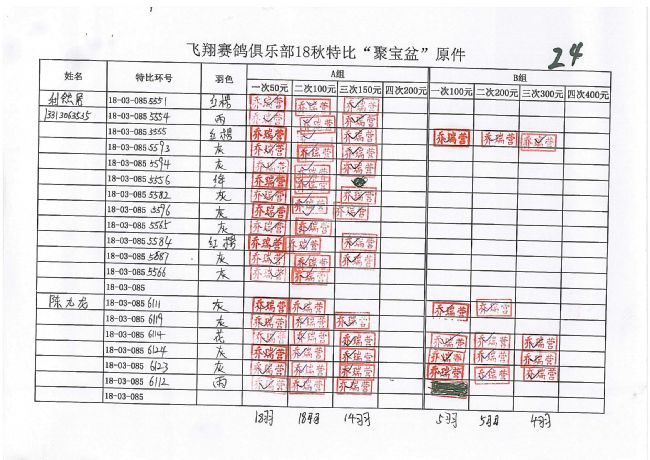 飞翔赛鸽俱乐部18秋特比“聚宝盆”原件
24
姓名 特比环号 羽色 A组 B组
一次50元 二次100元 三次150元 四次200元 一次100元 二次200元 三次300元 四次400元
18-03-085 5551 红楞 乔瑞营 乔瑞营 乔瑞营
18-03-085 5554 雨 乔瑞营 乔瑞营 乔瑞营
18-03-085 5555 红楞 乔瑞营 乔瑞营 乔瑞营 乔瑞营 乔瑞营
18-03-085 5593 灰 乔瑞营 乔瑞营 乔瑞营
18-03-085 5594 灰 乔瑞营 乔瑞营 乔瑞营
18-03-085 5556 绛 乔瑞营 乔瑞营
18-03-085 5582 灰 乔瑞营 乔瑞营 乔瑞营
18-03-085 5596 灰 乔瑞营 乔瑞营 乔瑞营
18-03-085 5565 灰 乔瑞营 乔瑞营
18-03-085 5584 红楞 乔瑞营 乔瑞营 乔瑞营
18-03-085 5887 灰 乔瑞营 乔瑞营 乔瑞营
18-03-085 5566 灰 乔瑞营 乔瑞营
18-03-085
18-03-085 6111 灰 乔瑞营 乔瑞营 乔瑞营 乔瑞营
18-03-085 6119 灰 乔瑞营 乔瑞营 乔瑞营
18-03-085 6114 花 乔瑞营 乔瑞营 乔瑞营 乔瑞营 乔瑞营 乔瑞营
18-03-085 6124 灰 乔瑞营 乔瑞营 乔瑞营 乔瑞营 乔瑞营 乔瑞营
18-03-085 6123 灰 乔瑞营 乔瑞营 乔瑞营 乔瑞营 乔瑞营 乔瑞营
18-03-085 6112 雨 乔瑞营 乔瑞营 乔瑞营
18-03-085
18羽 18羽 14羽 5羽 5羽 4羽